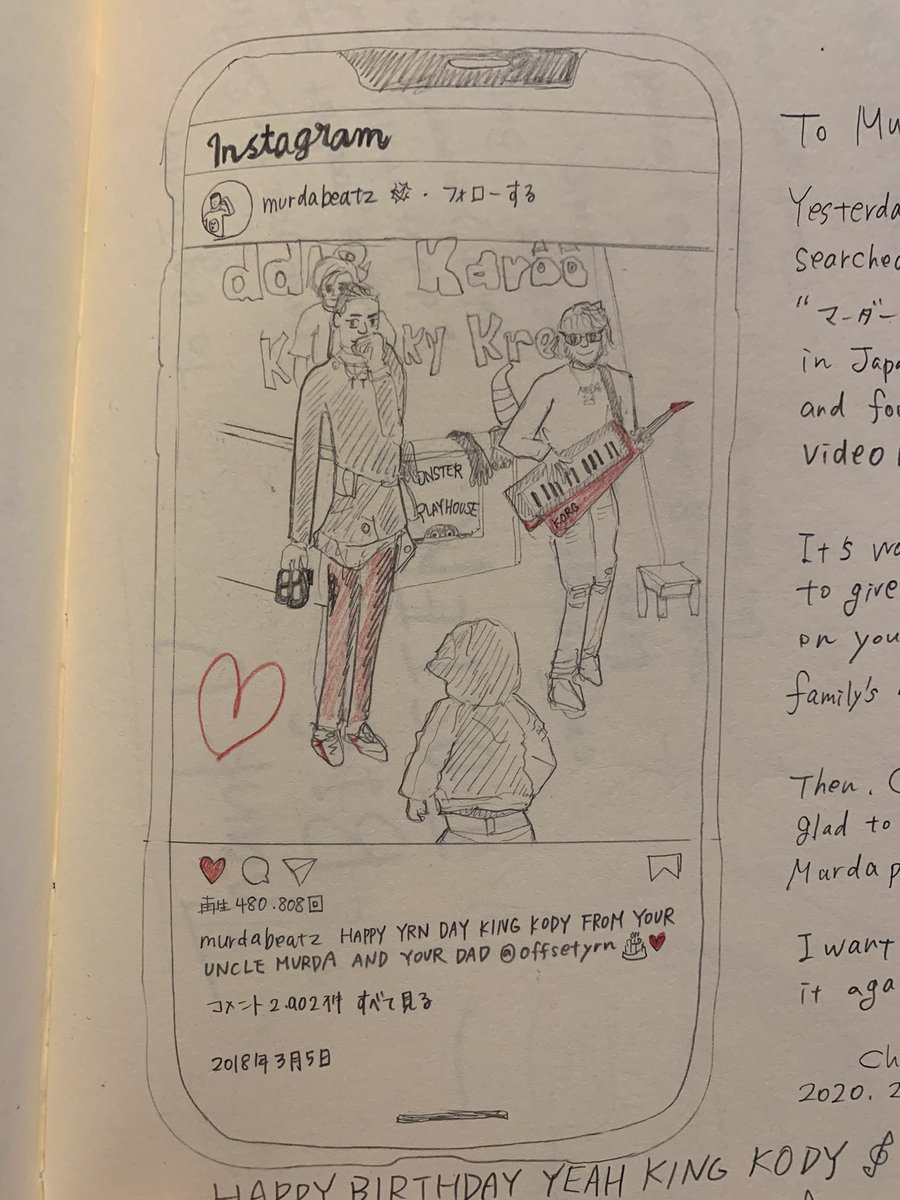 Instagram
murdabeatz フォローする
ddle Karoo
ky Kro
ONSTER
PLAYHOUSE
KORG
再生 480.808回
murdabeatz HAPPY YRN DAY KING KODY FROM YOUR
UNCLE MURDA AND YOUR DAD @offsetyrn
コメント2.902件 すべて見る
2018年3月5日
HAPPY BIRTHDAY YEAH KING KODY $
To Mu
Yesterda
searched
"マーダー
in Japa
and fou
video
It's wo
to give
on you
family's
Then.
glad to
Murda p
I want
it aga
Ch
2020. 2